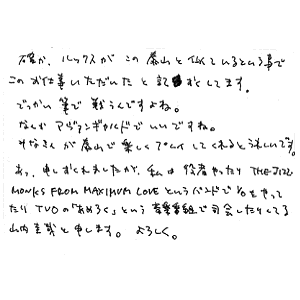 確か、ルックスがこの泰山と似ているという事で
このお仕事いただいたと記憶してます。
でっかい筆で戦うんですよね。
なんかアヴァンギャルドでいいですね。
みなさんが泰山で楽しくプレイしてくれるとうれしいです。
あっ、申しおくれましたが、私は役者やったり THE JIZZ
MONKS FROM MAXIMUM LOVE というバンドで
たり TVO の「あめろく」という音楽番組で司会したりしてる
山内圭哉と申します。よろしく。